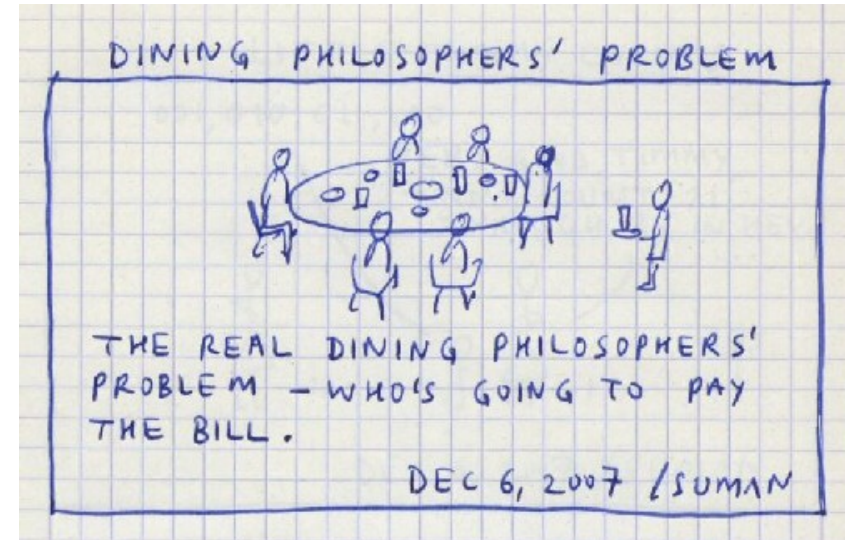 DINING PHILOSOPHERS' PROBLEM
THE REAL DINING PHILOSOPHERS'
PROBLEM - WHO'S GOING TO PAY
THE BILL.
DEC 6, 2007 /SUMAN